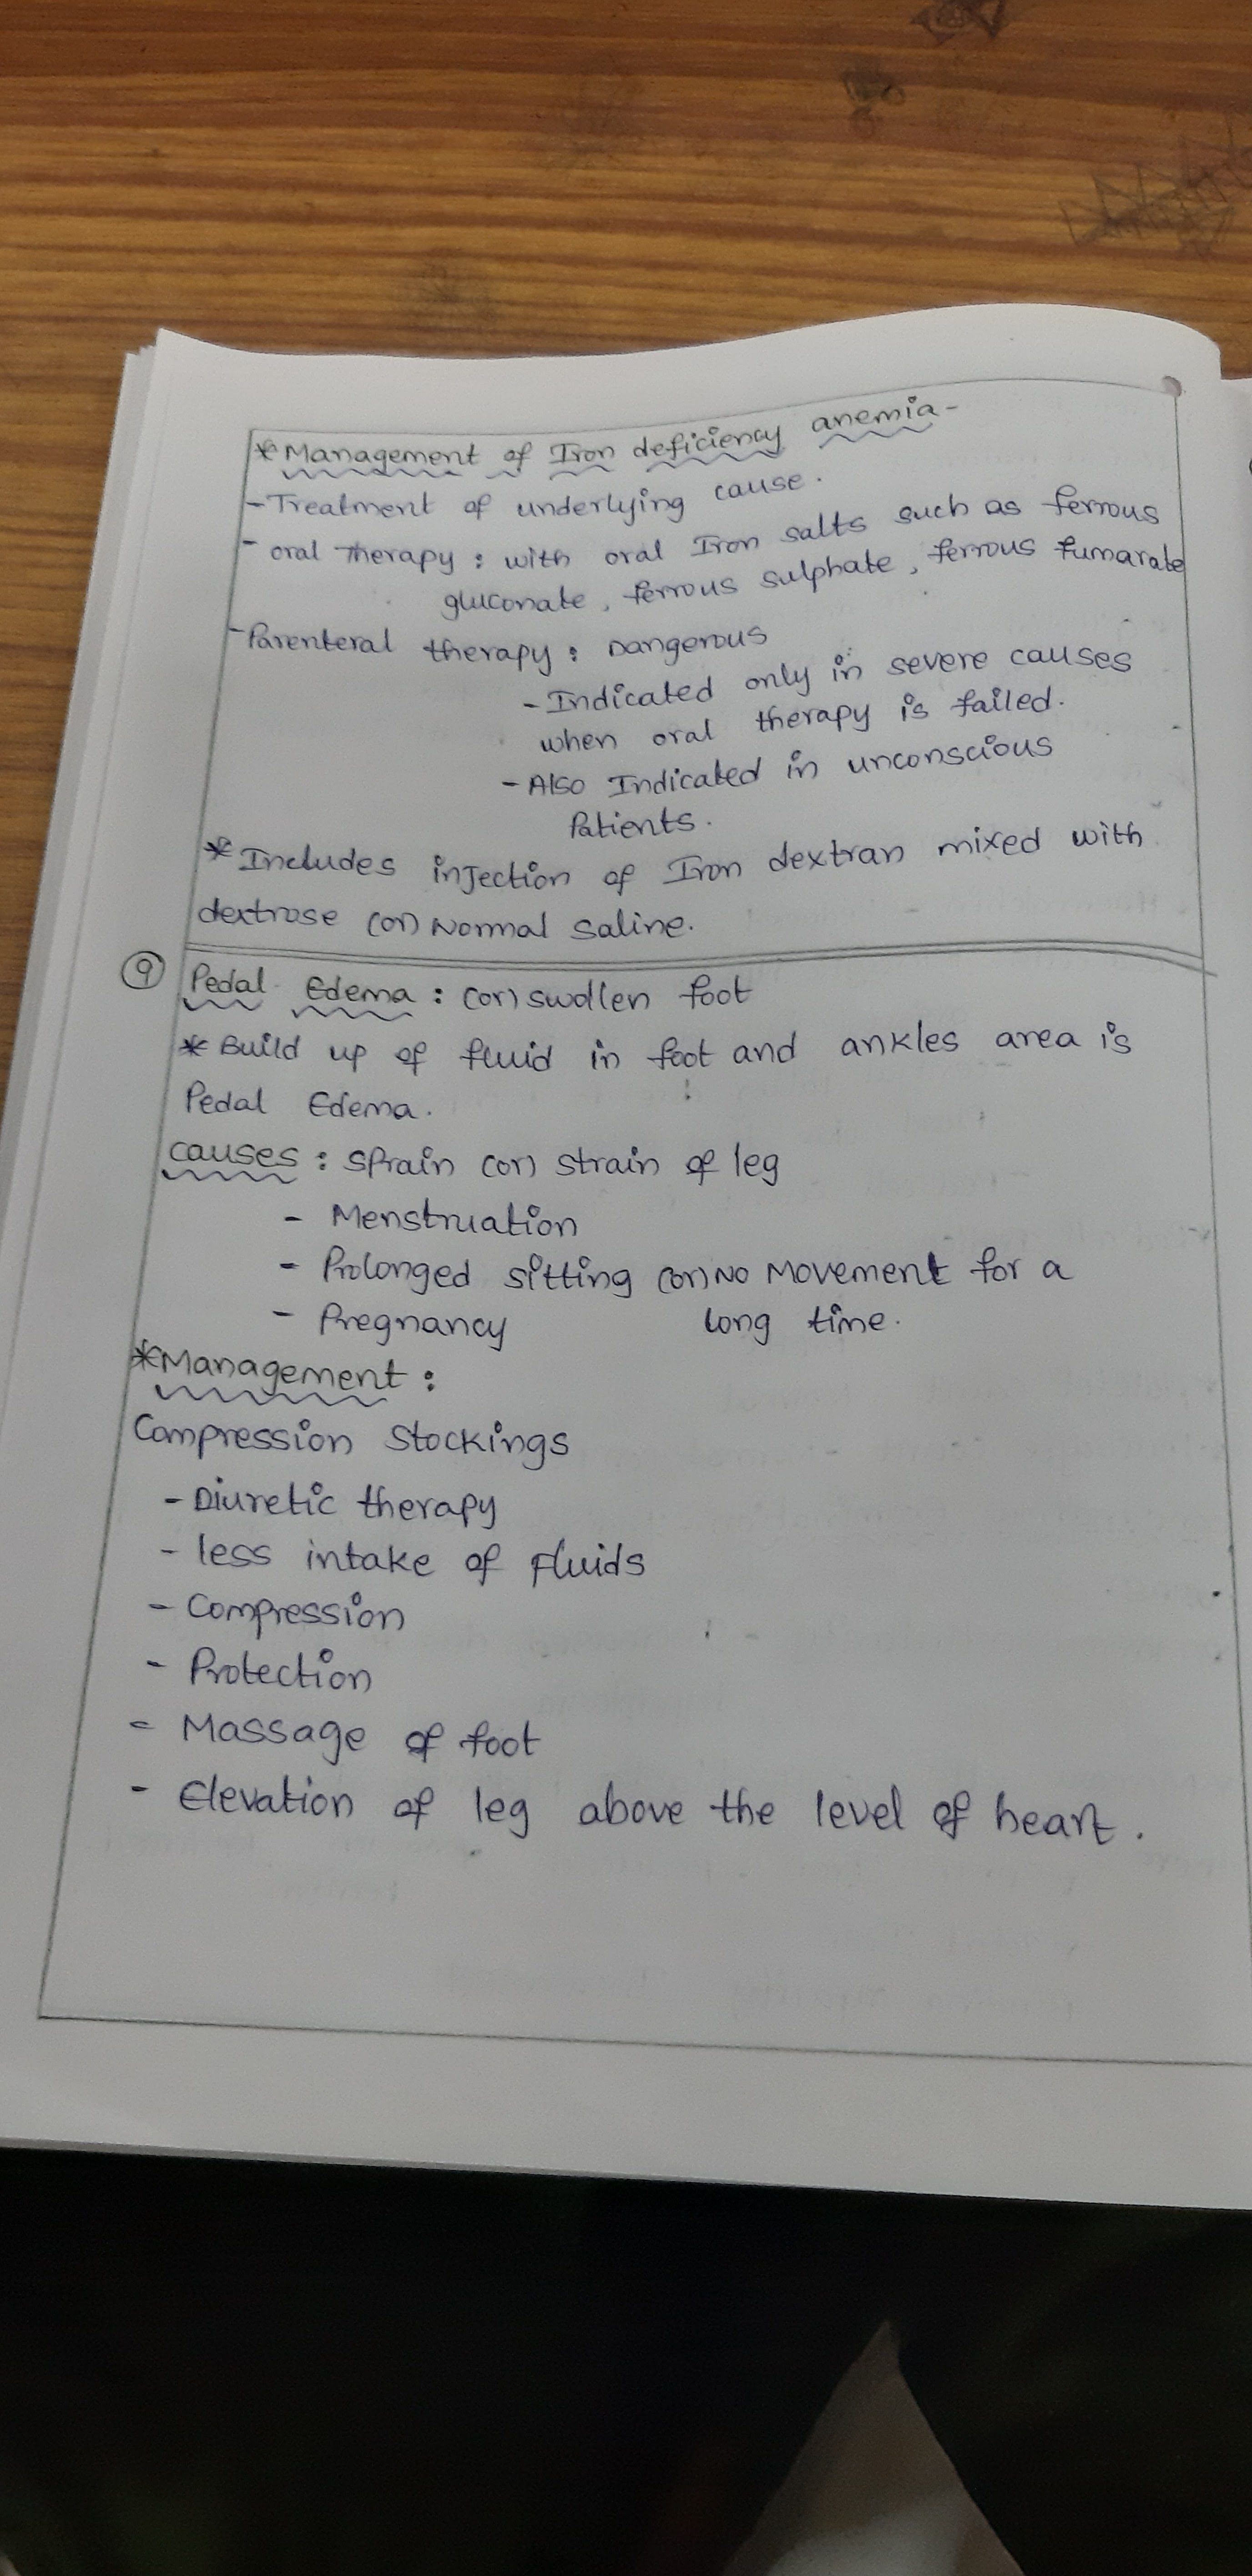 *Management of Iron deficiency anemia-
-Treatment of underlying cause.
- oral Therapy : with oral Iron salts such as ferrous
gluconate, ferrous sulphate, ferrous fumarate
-Parenteral therapy : Dangerous
-Indicated only in severe causes
when oral therapy is failed.
-Also Indicated in unconscious
Patients.
*Includes injection of Iron dextran mixed with
dextrose (or) Normal saline.
9 Pedal Edema : (or) swollen foot
* Build up of fluid in foot and ankles area is
Pedal Edema.
causes : sprain (or) strain of leg
- Menstruation
- Prolonged sitting (or) No Movement for a
- Pregnancy long time.
*Management :
Compression Stockings
- Diuretic therapy
- less intake of Fluids
- Compression
- Protection
- Massage of foot
- Elevation of leg above the level of heart.